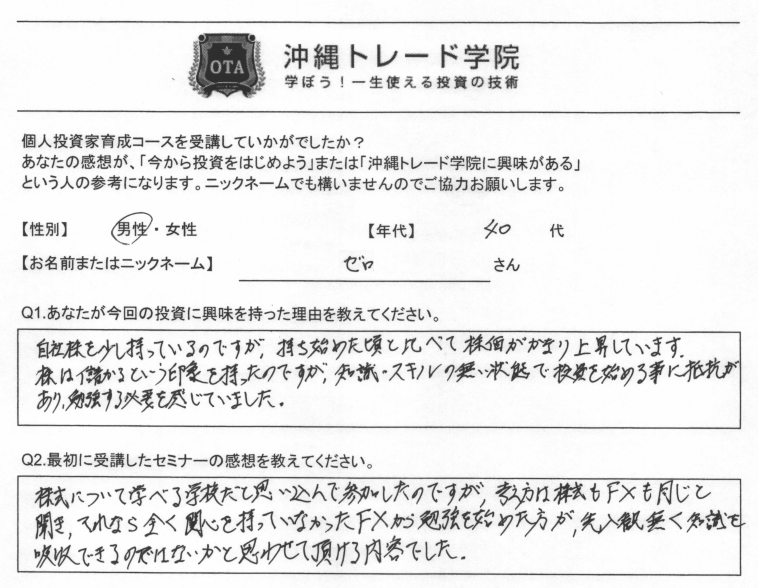 OTA
沖縄トレード学院
学ぼう！一生使える投資の技術
個人投資家育成コースを受講していかがでしたか？
あなたの感想が、「今から投資をはじめよう」または「沖縄トレード学院に興味がある」
という人の参考になります。ニックネームでも構いませんのでご協力お願いします。
【性別】 男性・女性 【年代】 40 代
【お名前またはニックネーム】 ゼロ さん
Q1.あなたが今回の投資に興味を持った理由を教えてください。
自社株を少し持っているのですが、持ち始めた頃と比べて株価がかなり上昇しています。
株は儲かるという印象を持ったのですが、知識・スキルの無い状態で投資を始める事に抵抗が
あり、勉強する必要を感じていました。
Q2.最初に受講したセミナーの感想を教えてください。
株式について学べる学校だと思い込んで参加したのですが、考え方は株式もFXも同じと
聞き、それなら全く関心を持っていなかったFXから勉強を始めた方が、先入観無く知識を
吸収できるのではないかと思わせて頂ける内容でした。